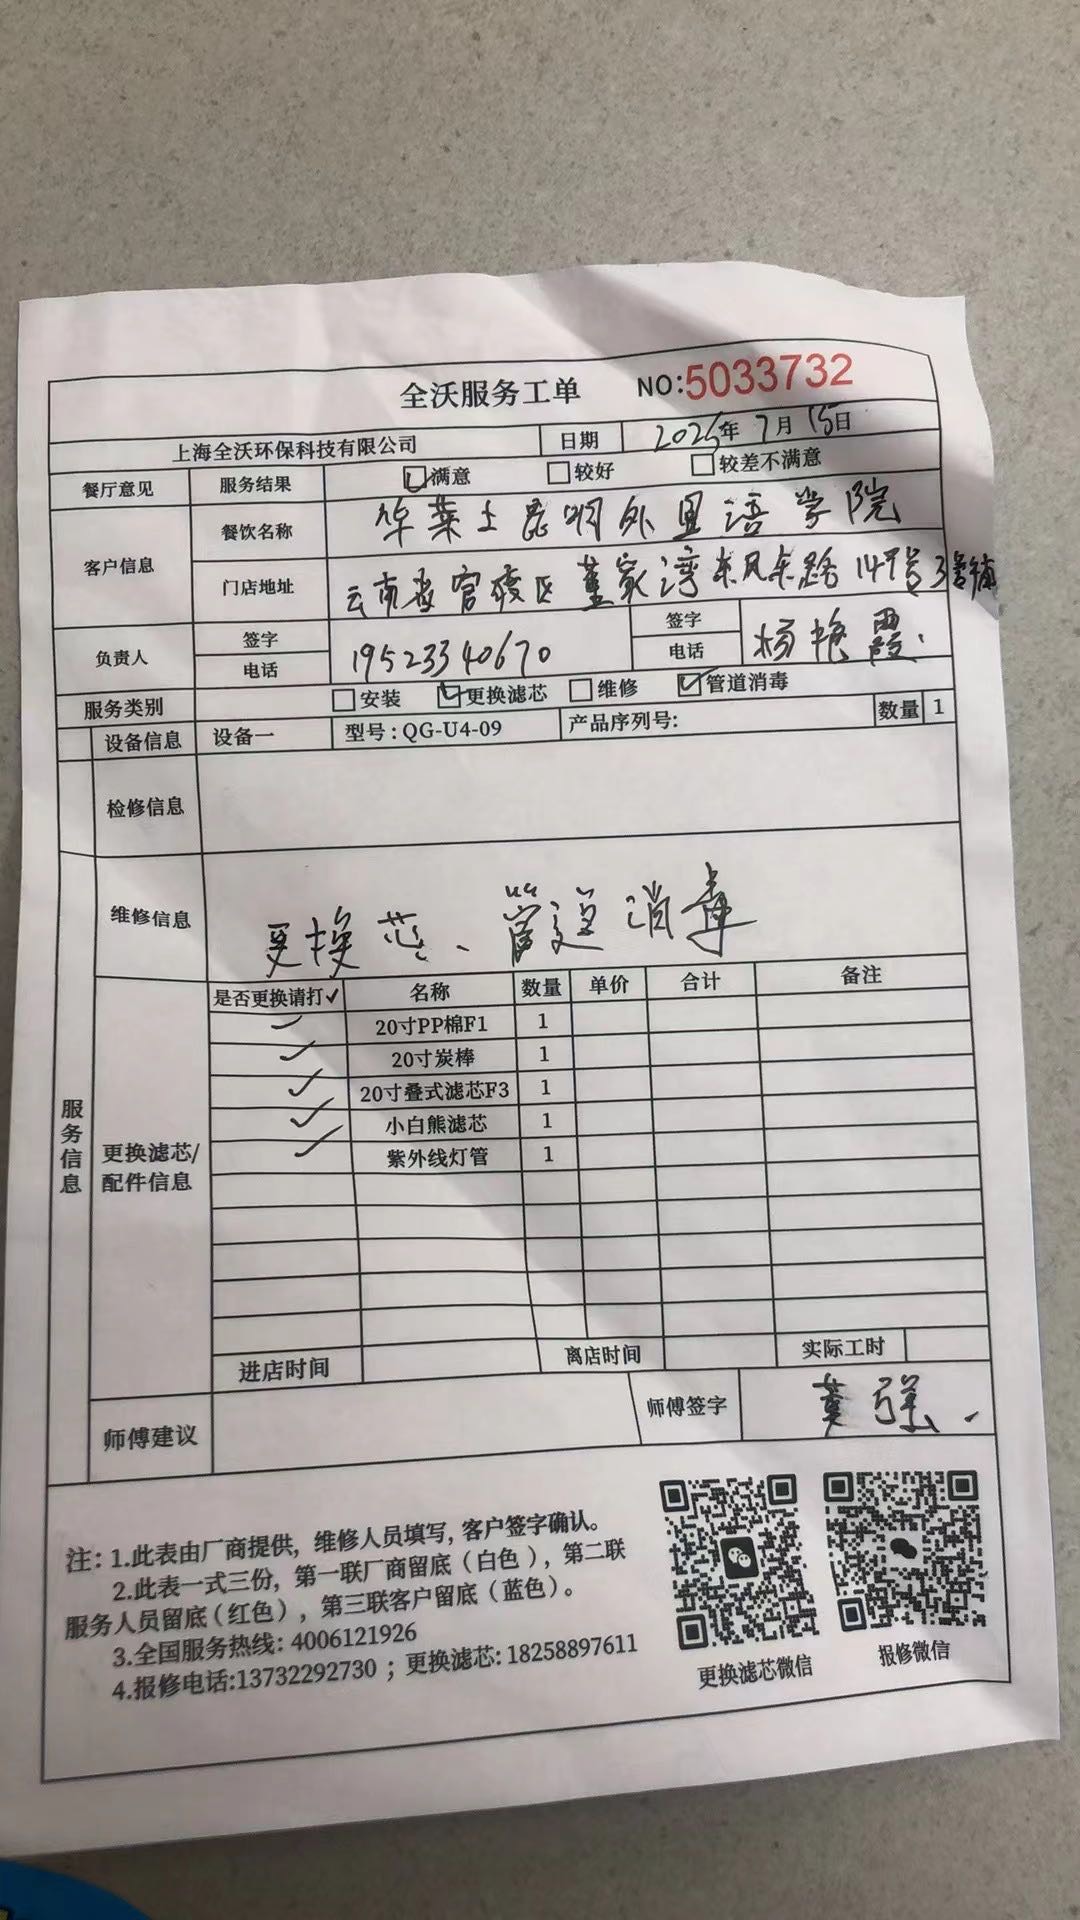 全沃服务工单 NO:5033732
上海全沃环保科技有限公司 日期 2025年7月15日
餐厅意见 服务结果 ☑满意 □较好 □较差不满意
客户信息 餐饮名称 华莱士昆明外国语学院
门店地址 云南省官渡区董家湾东风东路147号3号铺
负责人 签字 电话 19523340670 签字 电话 杨艳霞.
服务类别 □安装 ☑更换滤芯 □维修 ☑管道消毒
服务信息
设备信息 设备一 型号:QG-U4-09 产品序列号: 数量 1
检修信息
维修信息 更换芯、管道消毒
更换滤芯/配件信息
是否更换请打✓ 名称 数量 单价 合计 备注
✓ 20寸PP棉F1 1
✓ 20寸炭棒 1
✓ 20寸叠式滤芯F3 1
✓ 小白熊滤芯 1
✓ 紫外线灯管 1
进店时间 离店时间 实际工时
师傅建议 师傅签字 强
注: 1.此表由厂商提供，维修人员填写, 客户签字确认。
2.此表一式三份，第一联厂商留底（白色），第二联
服务人员留底（红色），第三联客户留底（蓝色）。
3.全国服务热线: 4006121926
4.报修电话:13732292730 ；更换滤芯: 18258897611
更换滤芯微信 报修微信